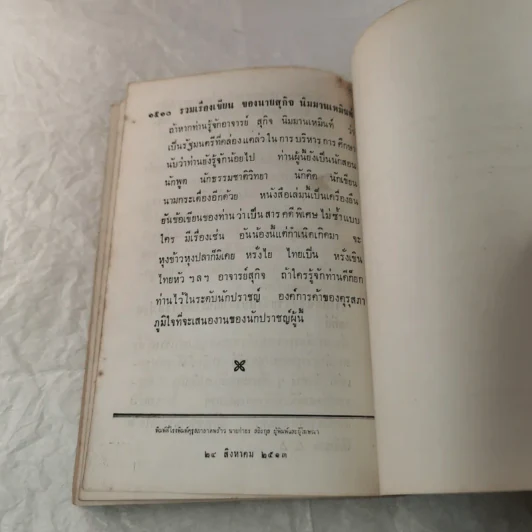 ๑๕๑๐ รวมเรื่องเขียน ของนายสุกิจ นิมมานเหมินท์
ถ้าหากท่านรู้จักอาจารย์ สุกิจ นิมมานเหมินท์ ว่า
เป็นรัฐมนตรีที่คล่องแคล่วในการบริหารการศึกษา
นับว่าท่านยังรู้จักน้อยไป ท่านผู้นี้ยังเป็นนักสอน
นักพูด นักธรรมชาติวิทยา นักคิด นักเขียน
นามกระเดื่องอีกด้วย หนังสือเล่มนี้เป็นเครื่องยืน
ยันข้อเขียนของท่าน ว่าเป็น สารคดีพิเศษ ไม่ซ้ำแบบ
ใคร มีเรื่องเช่น อันน้องนี้แต่กำเนิดเกิดมา จะ
หุงข้าวหุงปลาก็มิเคย หรั่งไย ไทยเป็น หรั่งเขิน
ไทยหัว ฯลฯ อาจารย์สุกิจ ถ้าใครรู้จักท่านดีก็ยก
ท่านไว้ในระดับนักปราชญ์ องค์การค้าของคุรุสภา
ภูมิใจที่จะเสนองานของนักปราชญ์ผู้นี้
พิมพ์ที่โรงพิมพ์คุรุสภาลาดพร้าว นายกำธร สถิรกุล ผู้พิมพ์และผู้โฆษณา
๒๔ สิงหาคม ๒๕๑๓